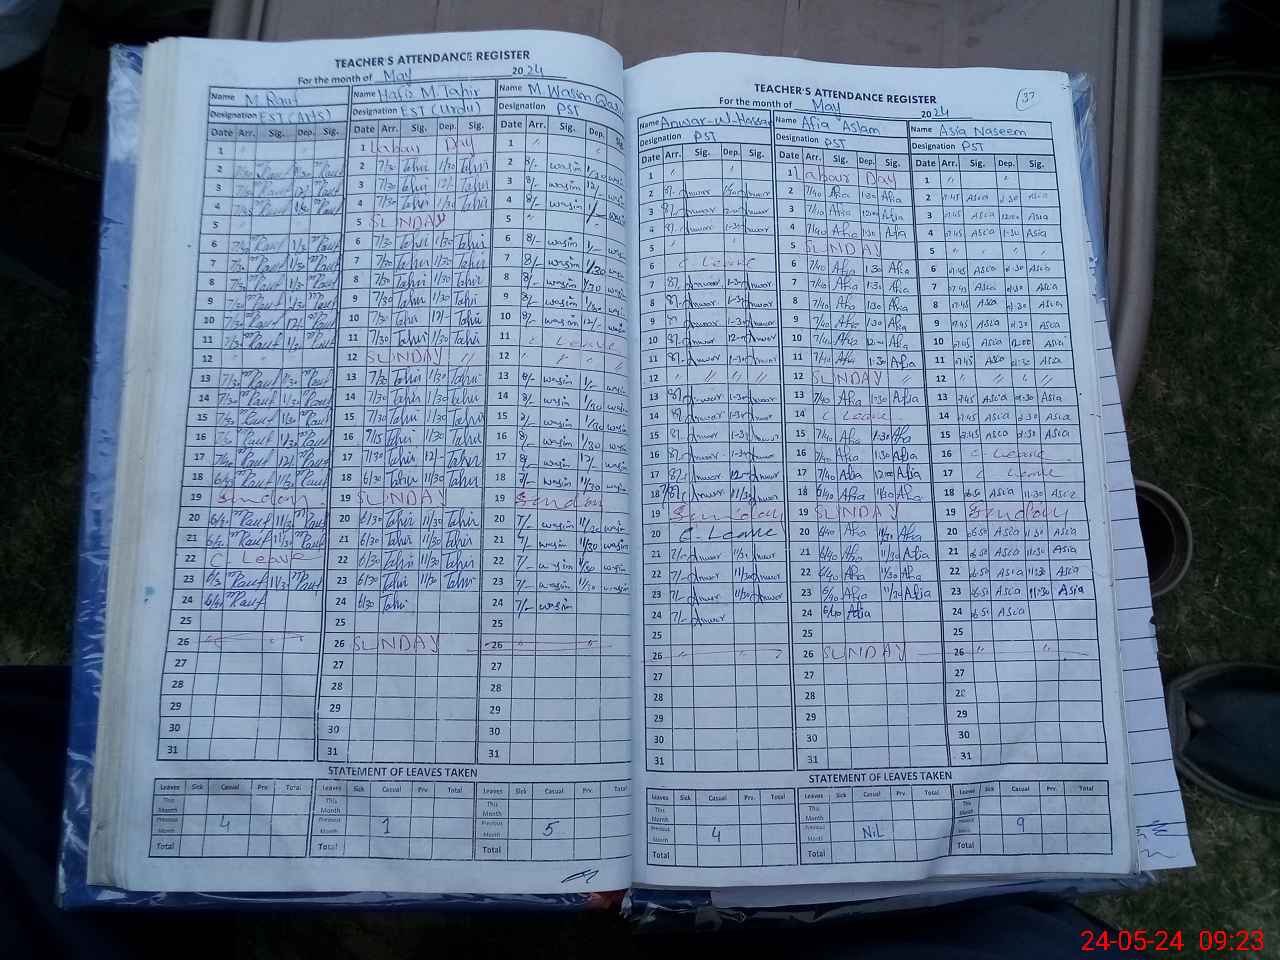 TEACHER'S ATTENDANCE REGISTER
For the month of May 2024
Name M. Rauf Name Hafiz M. Tahir Name M Wasim
Designation EST (Arts) Designation EST (Urdu) Designation PST
Date Arr. Sig. Dep. Sig. Date Arr. Sig. Dep. Sig. Date Arr. Sig. Dep. Sig.
1 " " 1 Labour Day 1 " "
2 7/30 Rauf 1/30 Rauf 2 7/30 Tahir 1/30 Tahir 2 8/- wasim 1/30 wasim
3 7/30 Rauf 12/- Rauf 3 7/30 Tahir 12/- Tahir 3 8/- wasim 12/ wasim
4 Rauf 1/30 Rauf 4 7/30 Tahir 1/30 Tahir 4 8/- wasim 1/- wasim
5 " " 5 SUNDAY 5 "
6 7/30 Rauf 1/30 Rauf 6 7/30 Tahir 1/30 Tahir 6 8/- wasim 1/- wasim
7 7/30 Rauf 1/30 Rauf 7 7/30 Tahir 1/30 Tahir 7 8/- wasim 1/30 wasim
8 7/30 Rauf 1/30 Rauf 8 7/30 Tahir 1/30 Tahir 8 8/- wasim 1/30 wasim
9 7/30 Rauf 1/30 Rauf 9 7/30 Tahir 1/30 Tahir 9 8/- wasim 1/30 wasim
10 7/30 Rauf 12/- Rauf 10 7/30 Tahir 12/- Tahir 10 8/- wasim 12/- wasim
11 7/30 Rauf 1/30 Rauf 11 7/30 Tahir 1/30 Tahir 11 C Leave
12 " " " 12 SUNDAY // 12 " " "
13 7/30 Rauf 1/30 Rauf 13 7/30 Tahir 1/30 Tahir 13 8/- wasim 1/- wasim
14 7/30 Rauf 1/30 Rauf 14 7/30 Tahir 1/30 Tahir 14 8/- wasim 1/30 wasim
15 7/30 Rauf 1/30 Rauf 15 7/30 Tahir 1/30 Tahir 15 8/- wasim 1/30 wasim
16 Rauf 1/30 Rauf 16 7/15 Tahir 1/30 Tahir 16 8/- wasim 1/30 wasim
17 Rauf 12/- Rauf 17 7/30 Tahir 12/- Tahir 17 8/- wasim 12/- wasim
18 6/40 Rauf 11/30 Rauf 18 6/30 Tahir 11/30 Tahir 18 7/- wasim 11/30 wasim
19 Sunday 19 SUNDAY 19 Sunday
20 Rauf 11/30 Rauf 20 6/30 Tahir 11/30 Tahir 20 7/- wasim 11/30 wasim
21 6/40 Rauf 11/30 Rauf 21 6/30 Tahir 11/30 Tahir 21 7/- wasim 11/30 wasim
22 C Leave 22 6/30 Tahir 11/30 Tahir 22 7/- wasim wasim
23 Rauf Rauf 23 6/30 Tahir 11/30 Tahir 23 7/- wasim 11/30 wasim
24 6/40 Rauf 24 6/30 Tahir 24 7/- wasim
25 25 25
26 " " 26 SUNDAY 26 " "
27 27 27
28 28 28
29 29 29
30 30 30
31 31 31
STATEMENT OF LEAVES TAKEN
Leaves Sick Casual Prv. Total Leaves Sick Casual Prv. Total Leaves Sick Casual Prv. Total
This Month This Month This Month
Previous Month 4 Previous Month 1 Previous Month 5
Total Total Total
37
TEACHER'S ATTENDANCE REGISTER
For the month of May 2024
Name Anwar-ul-Hassan Name Afia Aslam Name Asia Naseem
Designation PST Designation PST Designation PST
Date Arr. Sig. Dep. Sig. Date Arr. Sig. Dep. Sig. Date Arr. Sig. Dep. Sig.
1 " " 1 Labour Day 1 " "
2 8/- Anwar 1-30 Anwar 2 7/40 Afia 1:30 Afia 2 07:45 Asia 01:30 Asia
3 8/- Anwar 12-00 Anwar 3 7/40 Afia 12:00 Afia 3 07:45 Asia 12:00 Asia
4 8/- Anwar 1-30 Anwar 4 7/40 Afia 1:30 Afia 4 07:45 Asia 01:30 Asia
5 " " 5 SUNDAY 5 " " " "
6 C. Leave 6 7/40 Afia 1:30 Afia 6 07:45 Asia 01:30 Asia
7 8/- Anwar 1-30 Anwar 7 7/40 Afia 1:30 Afia 7 07:45 Asia 01:30 Asia
8 8/- Anwar 1-30 Anwar 8 7/40 Afia 1:30 Afia 8 07:45 Asia 01:30 Asia
9 8/- Anwar 1-30 Anwar 9 7/40 Afia 1:30 Afia 9 07:45 Asia 01:30 Asia
10 8/- Anwar 12-00 Anwar 10 7/40 Afia 12:00 Afia 10 07:45 Asia 12:00 Asia
11 8/- Anwar 1-30 Anwar 11 7/40 Afia 1:30 Afia 11 07:45 Asia 01:30 Asia
12 " // // // 12 SUNDAY // 12 " " // //
13 8/- Anwar 1-30 Anwar 13 7/40 Afia 1:30 Afia 13 07:45 Asia 01:30 Asia
14 8/- Anwar 1-30 Anwar 14 C Leave 14 07:45 Asia 01:30 Asia
15 8/- Anwar 1-30 Anwar 15 7/40 Afia 1:30 Afia 15 07:45 Asia 01:30 Asia
16 8/- Anwar 1-30 Anwar 16 7/40 Afia 1:30 Afia 16 C Leave
17 8/- Anwar 12-00 Anwar 17 7/40 Afia 12:00 Afia 17 C Leave
18 Anwar 11/30 Anwar 18 6/40 Afia 11/30 Afia 18 06:50 Asia 11:30 Asia
19 Sunday 19 SUNDAY 19 Sunday
20 C. Leave 20 6/40 Afia 11/30 Afia 20 06:50 Asia 11:30 Asia
21 7/- Anwar 11/30 Anwar 21 6/40 Afia 11/30 Afia 21 06:50 Asia 11:30 Asia
22 7/- Anwar 11/30 Anwar 22 6/40 Afia 11/30 Afia 22 06:50 Asia 11:30 Asia
23 7/- Anwar 11/30 Anwar 23 6/40 Afia 11/30 Afia 23 06:50 Asia 11:30 Asia
24 7/- Anwar 24 6/40 Afia 24 06:50 Asia
25 25 25
26 " " " 26 SUNDAY 26 " "
27 27 27
28 28 28
29 29 29
30 30 30
31 31 31
STATEMENT OF LEAVES TAKEN
Leaves Sick Casual Prv. Total Leaves Sick Casual Prv. Total Leaves Sick Casual Prv. Total
This Month This Month This Month
Previous Month 4 Previous Month Nil Previous Month 9
Total Total Total
24-05-24 09:23